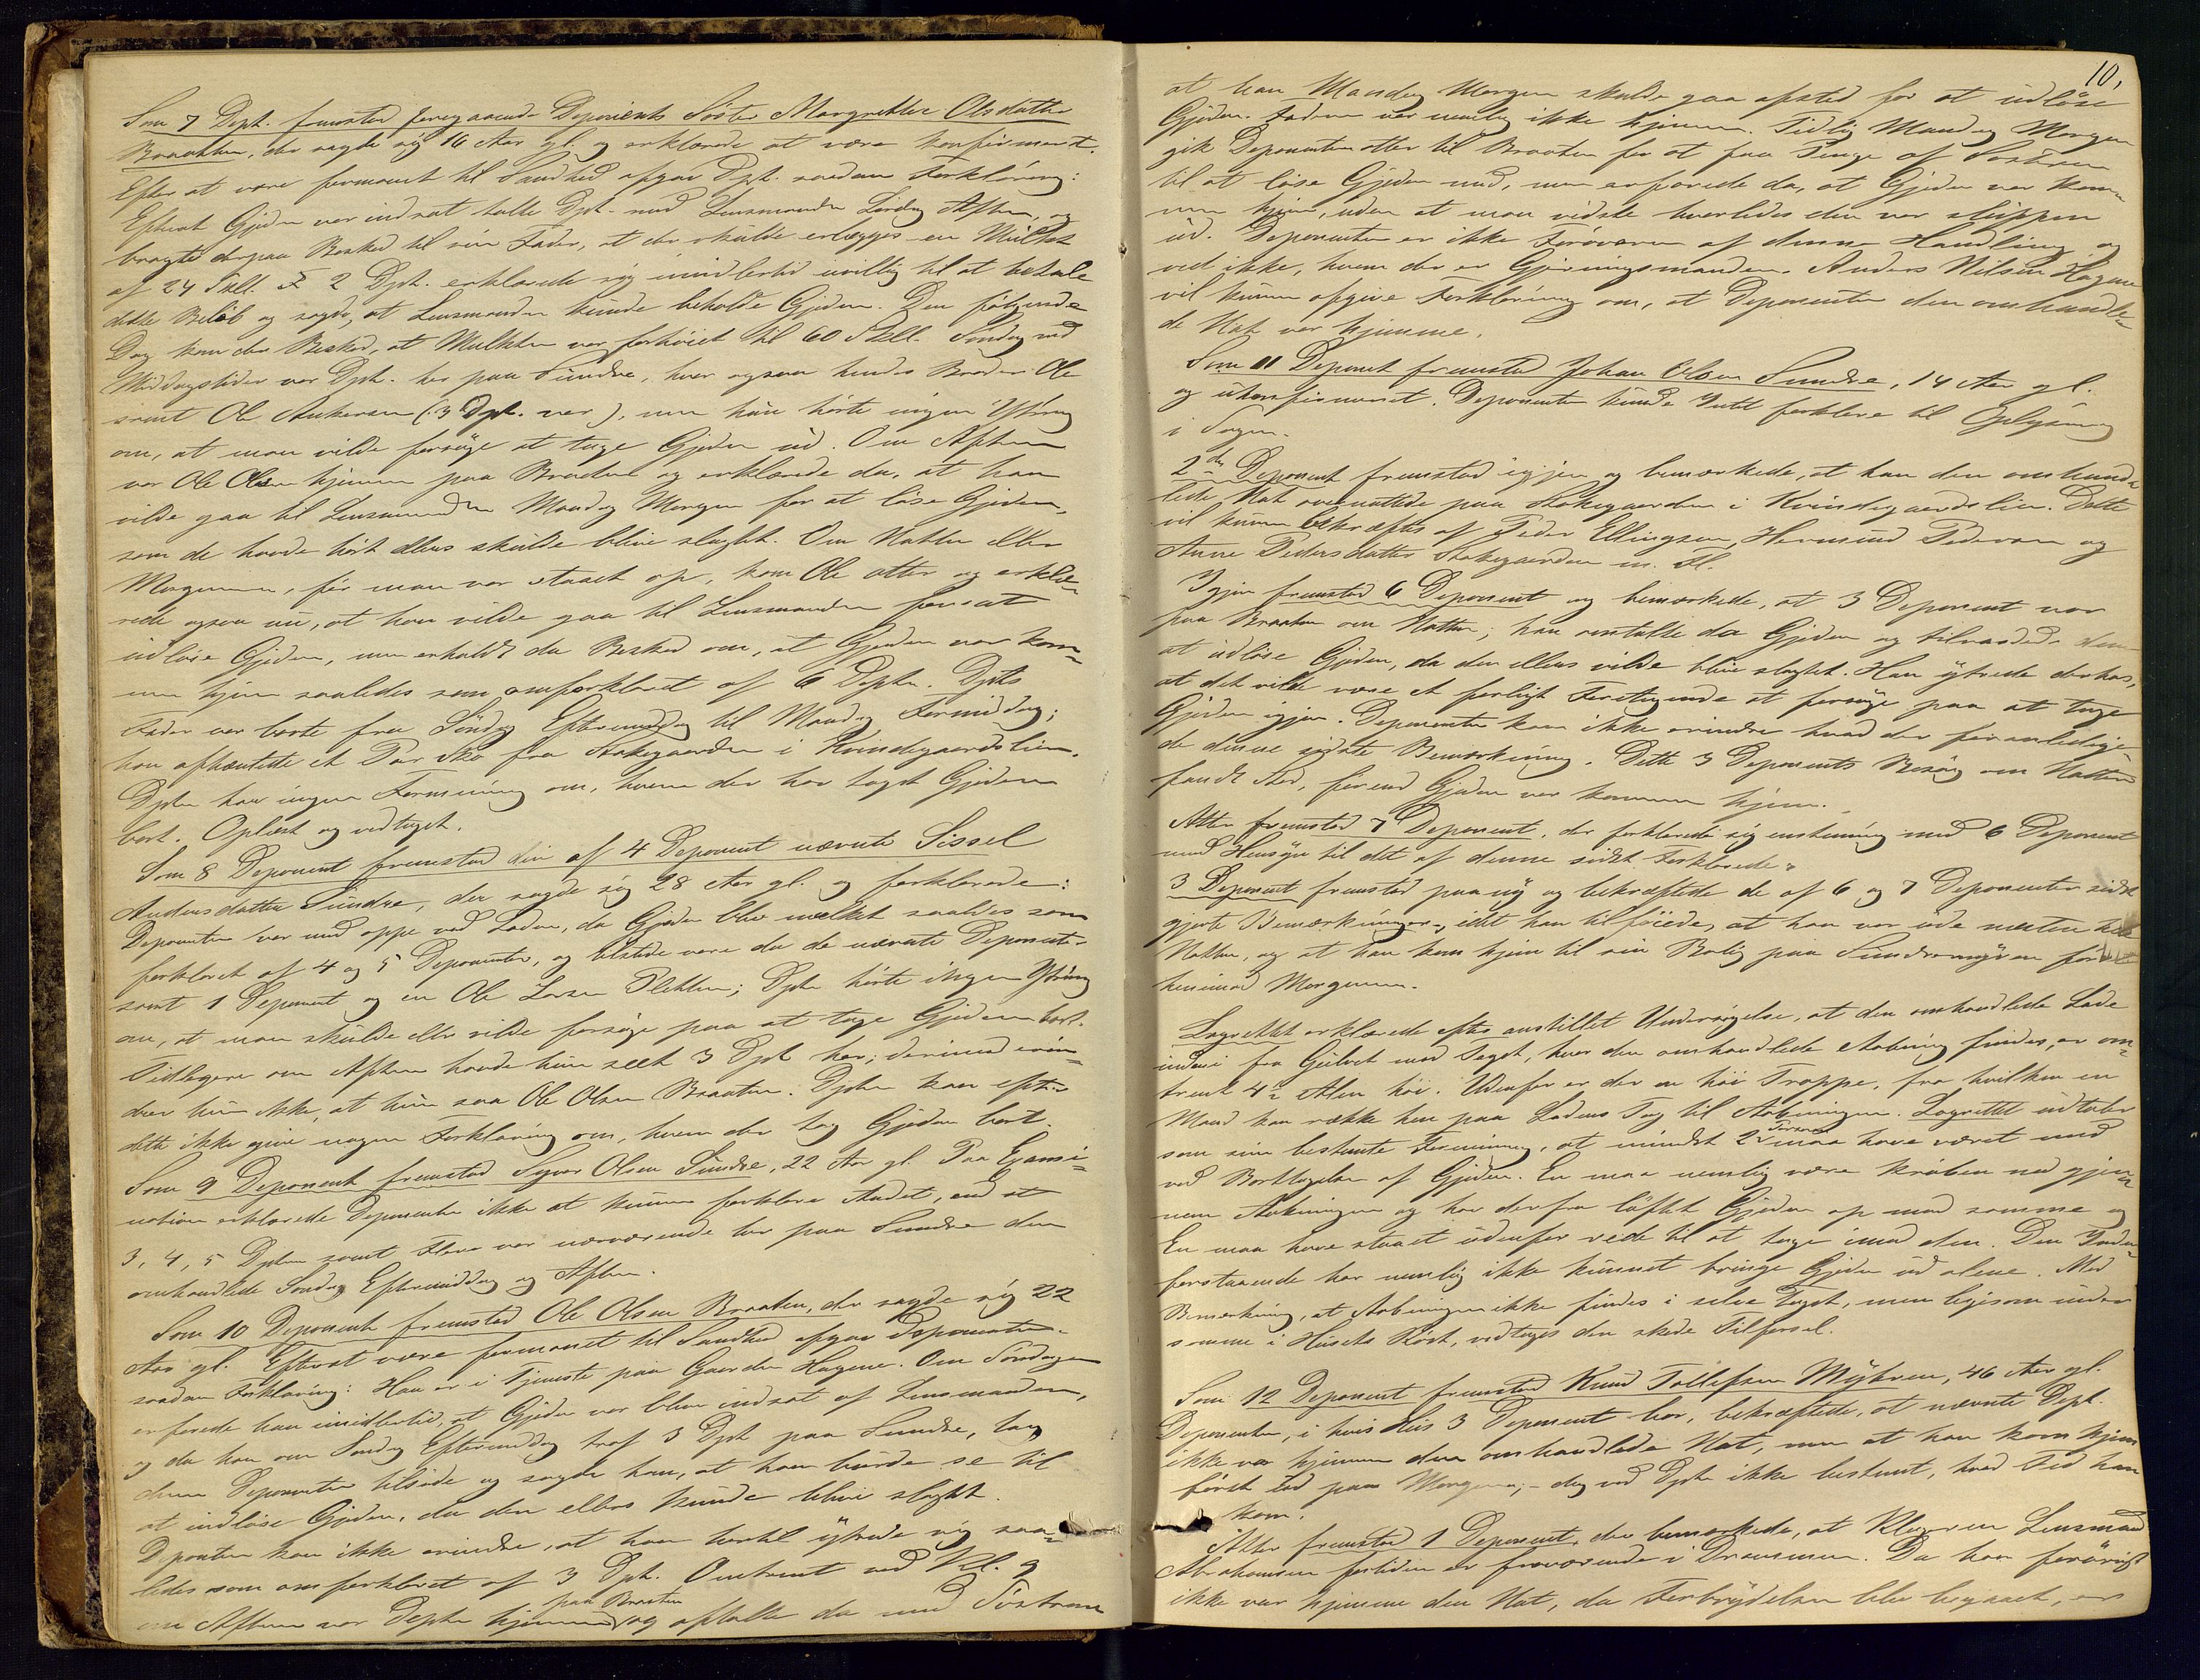 Som 7 Dept. fremstod foregaaende Deponents Söster Margrethe Olsdatter
Braathen, der sagde sig 16 Aar gl. og erklærede at være konfirmeret.
Efter at være formanet til Sandhed afgav Dpt. saadan Forklaring:
Efterat Gjeden var indsat talte Dpt. med Lensmanden Lördag Aften, og
bragte derpaa Besked til sin Fader, at der skulde erlægges en Mulkt
af 24 Skill. 2 Dpt. erklærede sig imidlertid uvillig til at betale
dette Belöb og sagde, at Lensmanden kunde beholde Gjeden. Den fölgende
Dag kom der Besked, at Mulkten var forhöiet til 60 Skill. Söndag ved
Middagstider var Dpt. her paa Sundre, hvor ogsaa hendes Broder Ole
samt Ole Ankersen (: 3 Dpt. var), men hun hörte ingen Ytring
om, at man vilde forsöge at tage Gjeden ud. Om Aftenen
var Ole Olsen hjemme paa Braaten og erklærede da, at han
vilde gaa til Lensmanden Mandag Morgen for at löse Gjeden,
som de havde hört ellers skulde blive slagtet. Om Natten eller
Morgenen, för man var staaet op, kom Ole atter og erklæ-
rede ogsaa nu, at han vilde gaa til Lensmanden forat
udlöse Gjeden, men erholdt da Besked om, at Gjeden var kom-
men hjem saaledes som omforklaret af 6 Deptn. Dpts
Fader var borte fra Söndag Eftermiddag til Mandag Formiddag;
han afhentede et Par Sko fra Stakegaarden i Kvindegaardslien.
Dptn har ingen Formening om, hvem der har taget Gjeden
bort. Oplæst og vedtaget.
Som 8 Deponent fremstod den af 4 Deponent nævnte Sissel
Andersdatter Sundre, der sagde sig 28 Aar gl. og forklarede:
Deponenten var med oppe ved Laden, da Gjeden blev melket saaledes som
forklaret af 4 og 5 Deponenter, og tilstede vare da de nævnte Deponenter
samt 1 Deponent og en Ole Larsen Sletten; Dptn hörte ingen Ytring
om, at man skulde eller vilde forsöge paa at tage Gjeden bort.
Tidligere om Aftenen havde hun seet 3 Dpt her; derimod erin-
drer hun ikke, at hun saa Ole Olsen Braaten. Dptn kan efter
dette ikke give nogen Forklaring om, hvem der tog Gjeden bort.
Som 9 Deponent fremstod Syver Olsen Sundre, 22 Aar gl. Paa Exami-
nation erklærede Deponenten ikke at kunne forklare Andet, end at
3, 4, 5 Dptn samt Flere var nærværende her paa Sundre den
omhandlede Söndag Eftermiddag og Aften.
Som 10 Deponent fremstod Ole Olsen Braaten, der sagde sig 22
Aar gl. Efterat være formanet til Sandhed afgav Deponenten
saadan Forklaring: Han er i Tjeneste paa Gaarden Hagene. Om Söndagen
erfarede han imidlertid, at Gjeden var bleven indsat af Lensmanden,
og da han om Söndag Eftermiddag traf 3 Dpt paa Sundre, tog
denne Deponenten tilside og sagde ham, at han burde se til
at indlöse Gjeden, da den ellers kunde blive slagtet.
Deponenten kan ikke erindre, at han dertil ytrede sig saa-
ledes som omforklaret af 3 Dpt. Omtrent ved Kl. 9
om Aftenen var Deptn hjemme paa Braaten og aftalte da med Söstrene
10.
at han Mandag Morgen skulde gaa afsted for at udlöse
Gjeden. Faderen var nemlig ikke hjemme. Tidlig Mandag Morgen
gik Deponenten atter til Braaten for at faa Penge af Söstrene
til at löse Gjeden med, men erfarede da, at Gjeden var kom-
men hjem, uden at man vidste hvorledes den var sluppen
ud. Deponenten er ikke Udöveren af denne Handling og
ved ikke, hvem der er Gjerningsmanden. Anders Nilsen Hagene
vil kunne afgive Forklaring om, at Deponenten den omhandle-
de Nat var hjemme.
Som 11 Deponent fremstod Johan Olsen Sundre, 14 Aar gl.
og ukonfirmeret. Deponenten kunde Intet forklare til Oplysning
i Sagen.
2den Deponent fremstod igjen og bemærkede, at han den omhand-
lede Nat overnattede paa Stakegaarden i Kvindegaardslien. Dette
vil kunne bekræftes af Peder Ellingsen, Hermund Pedersen og
Anne Pedersdatter Stakegaarden m. fl.
Igjen fremstod 6 Deponent og bemærkede, at 3 Deponent var
paa Braaten om Natten; han omtalte da Gjeden og tilraadede dem
at udlöse Gjeden, da den ellers vilde blive slagtet. Han ytrede derhos,
at det vilde være et farligt Foretagende at forsöge paa at tage
Gjeden igjen. Deponenten kan ikke erindre hvad der foranledige-
de denne sidste Bemærkning. Dette 3 Deponents Besög om Natten
fandt Sted, förend Gjeden var kommen hjem.
Atter fremstod 7 Deponent, der forklarede sig enstemmig med 6 Deponent
med Hensyn til det af denne sidst Forklarede.
3 Deponent fremstod paany og bekræftede de af 6 og 7 Deponenter sidst
gjorte Bemærkninger, idet han tilföiede, at han var ude næsten hele
Natten, og at han kom hjem til sin Bolig paa Sundremyren först
henimod Morgenen.
Lagrettet erklærede efter anstillet Undersögelse, at den omhandlede Lade
indeni fra Gulvet mod Taget, hvor den omhandlede Aabning findes, er om-
trent 4½ Alen höi. Udenfor er der en höi Trappe, fra hvilken en
Mand kan række hen paa Ladens Tag til Aabningen. Lagrettet udtaler
som sin bestemte Formening, at mindst 2 Personer maa have været med
ved Borttagelsen af Gjeden. En maa nemlig være kröben ned gjen-
nem Aabningen og har derfra löftet Gjeden op mod samme og
En maa have staaet udenfor rede til at tage imod den. Den Inden-
forstaaende har nemlig ikke kunnet bringe Gjeden ud alene. Med
Bemærkning, at Aabningen ikke findes i selve Taget, men ligesom under
samme i Husets Röst, vedtages den skede Tilförsel.
Som 12 Deponent fremstod Knud Tollefsen Myhren, 46 Aar gl.
Deponenten, i hvis Hus 3 Deponent bor, bekræftede, at nævnte Dept.
ikke var hjemme den omhandlede Nat, men at han kom hjem
först led paa Morgenen; - dog ved Dptn ikke bestemt, hvad Tid han
kom.
Atter fremstod 1 Deponent, der bemærkede, at Klageren Lensmand
Abrahamsen fortiden er fraværende i Drammen. Da han forövrigt
ikke var hjemme den Nat, da Forbrydelsen blev begaaet, er